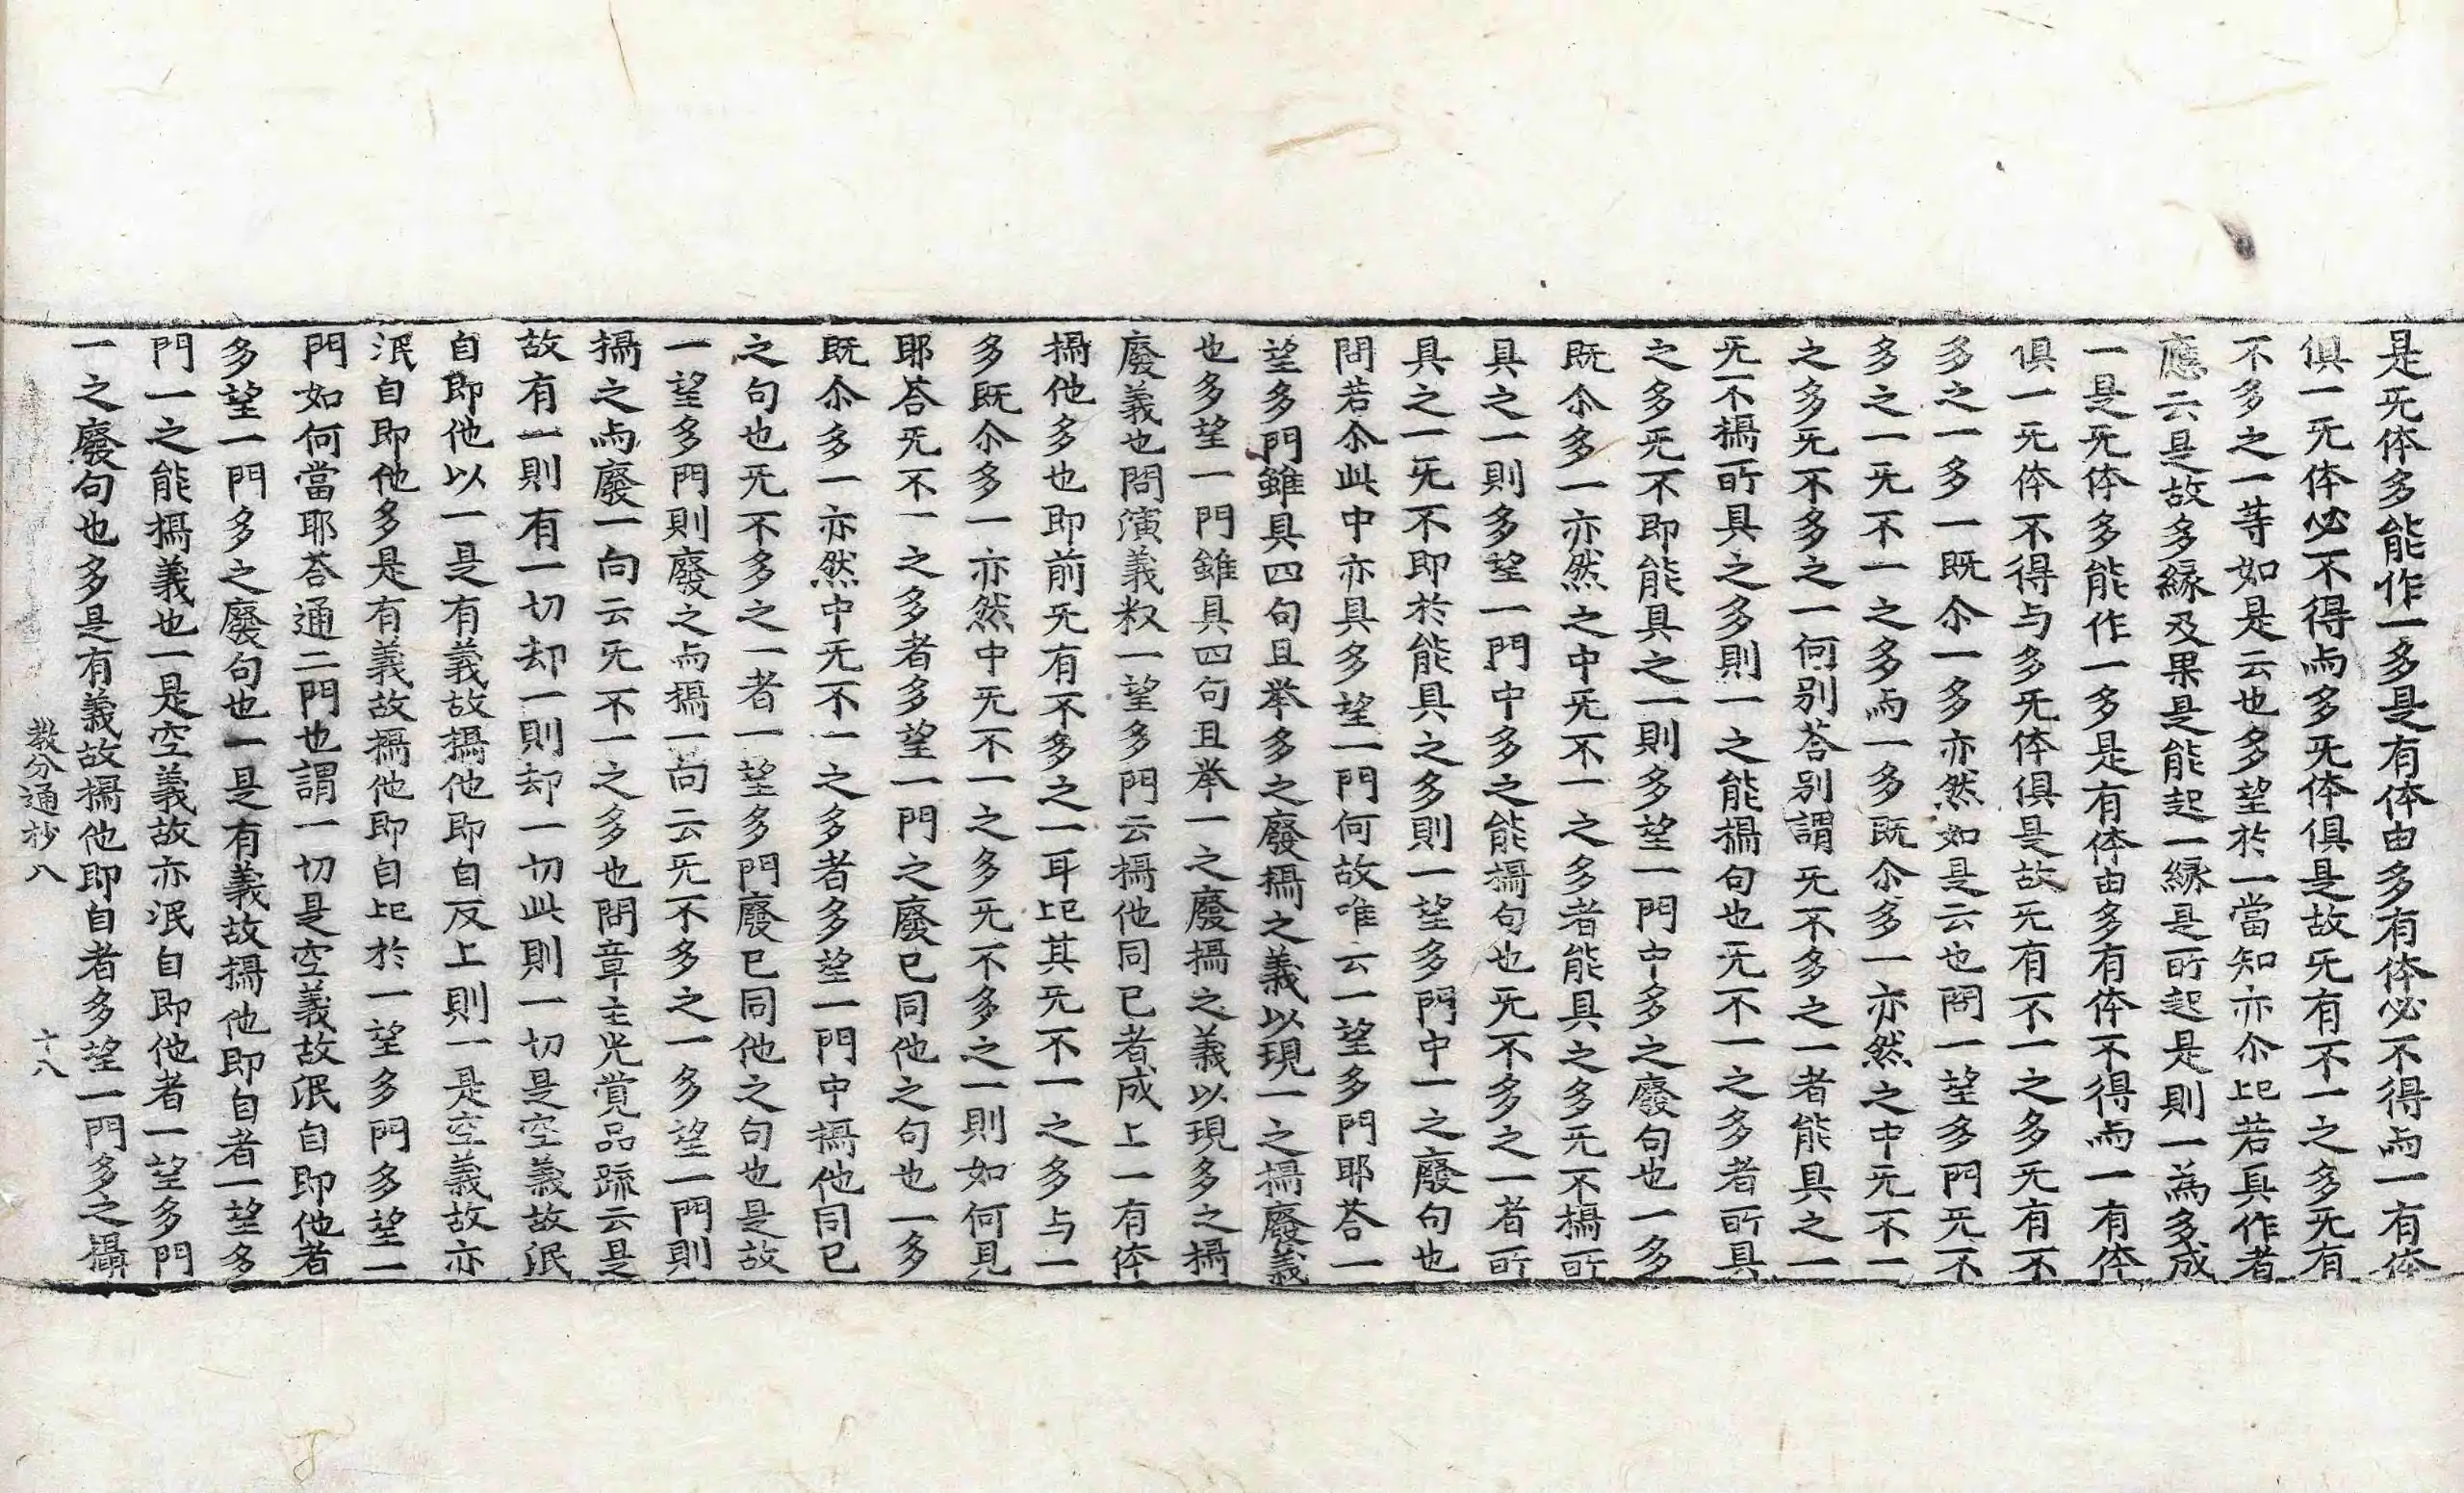 是旡体多能作一多是有体由多有体必不得而一有体
俱一旡体必不得而多旡体俱是故旡有不一之多旡有
不多之一等如是云也多望於一當知亦尒記若具作者
應云是故多縁及果是能起一縁是所起是則一為多成
一是旡体多能作一多是有体由多有体不得而一有体
俱一旡体不得与多旡体俱是故旡有不一之多旡有不
多之一多一既尒一多亦然如是云也問一望多門旡不
多之一旡不一之多而一多既尒多一亦然之中旡不一
之多旡不多之一何別荅別謂旡不多之一者能具之一
旡不攝所具之多則一之能攝句也旡不一之多者所具
之多旡不即能具之一則多望一門中多之廢句也一多
既尒多一亦然之中旡不一之多者能具之多旡不攝所
具之一則多望一門中多之能攝句也旡不多之一者所
具之一旡不即於能具之多則一望多門中一之廢句也
問若尒此中亦具多望一門何故唯云一望多門耶荅一
望多門雖具四句且举多之廢攝之義以現一之攝廢義
也多望一門雖具四句且举一之廢攝之義以現多之攝
廢義也問演義釈一望多門云攝他同己者成上一有体
攝他多也即前旡有不多之一耳記其旡不一之多与一
多既尒多一亦然中旡不一之多旡不多之一則如何見
耶荅旡不一之多者多望一門之廢已同他之句也一多
既尒多一亦然中旡不一之多者多望一門中攝他同已
之句也旡不多之一者一望多門廢已同他之句也是故
一望多門則廢之而攝一向云旡不多之一多望一門則
攝之而廢一向云旡不一之多也問章主光覚品䟽云是
故有一則有一切却一則却一切此則一切是空義故泯
自即他以一是有義故攝他即自反上則一是空義故亦
泯自即他多是有義故攝他即自記於一望多門多望一
門如何當耶荅通二門也謂一切是空義故泯自即他者
多望一門多之廢句也一是有義故攝他即自者一望多
門一之能攝義也一是空義故亦泯自即他者一望多門
一之廢句也多是有義故攝他即自者多望一門多之攝
教分通抄八　十八